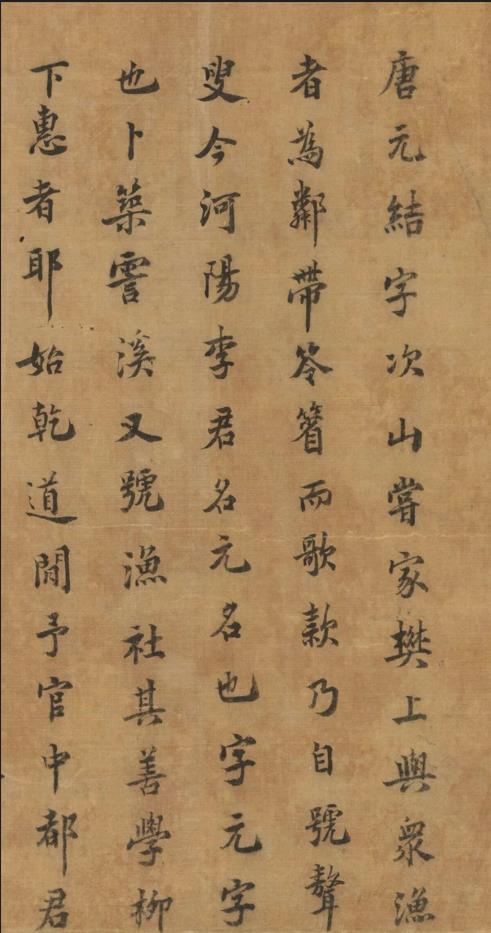 唐元結字次山嘗家樊上與衆漁
者為鄰帶笭箵而歌欵乃自號聱
叟今河陽李君名元名也字元字
也卜築霅溪又號漁社其善學柳
下惠者耶始乾道間予官中都君